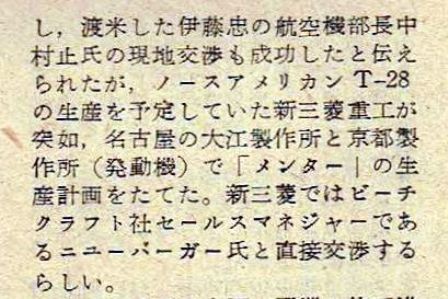 し，渡米した伊藤忠の航空機部長中
村止氏の現地交渉も成功したと伝え
られたが，ノースアメリカンT-28
の生産を予定していた新三菱重工が
突如，名古屋の大江製作所と京都製
作所（発動機）で「メンター」の生
産計画をたてた。新三菱ではビーチ
クラフト社セールスマネジャーであ
るニューバーガー氏と直接交渉する
らしい。